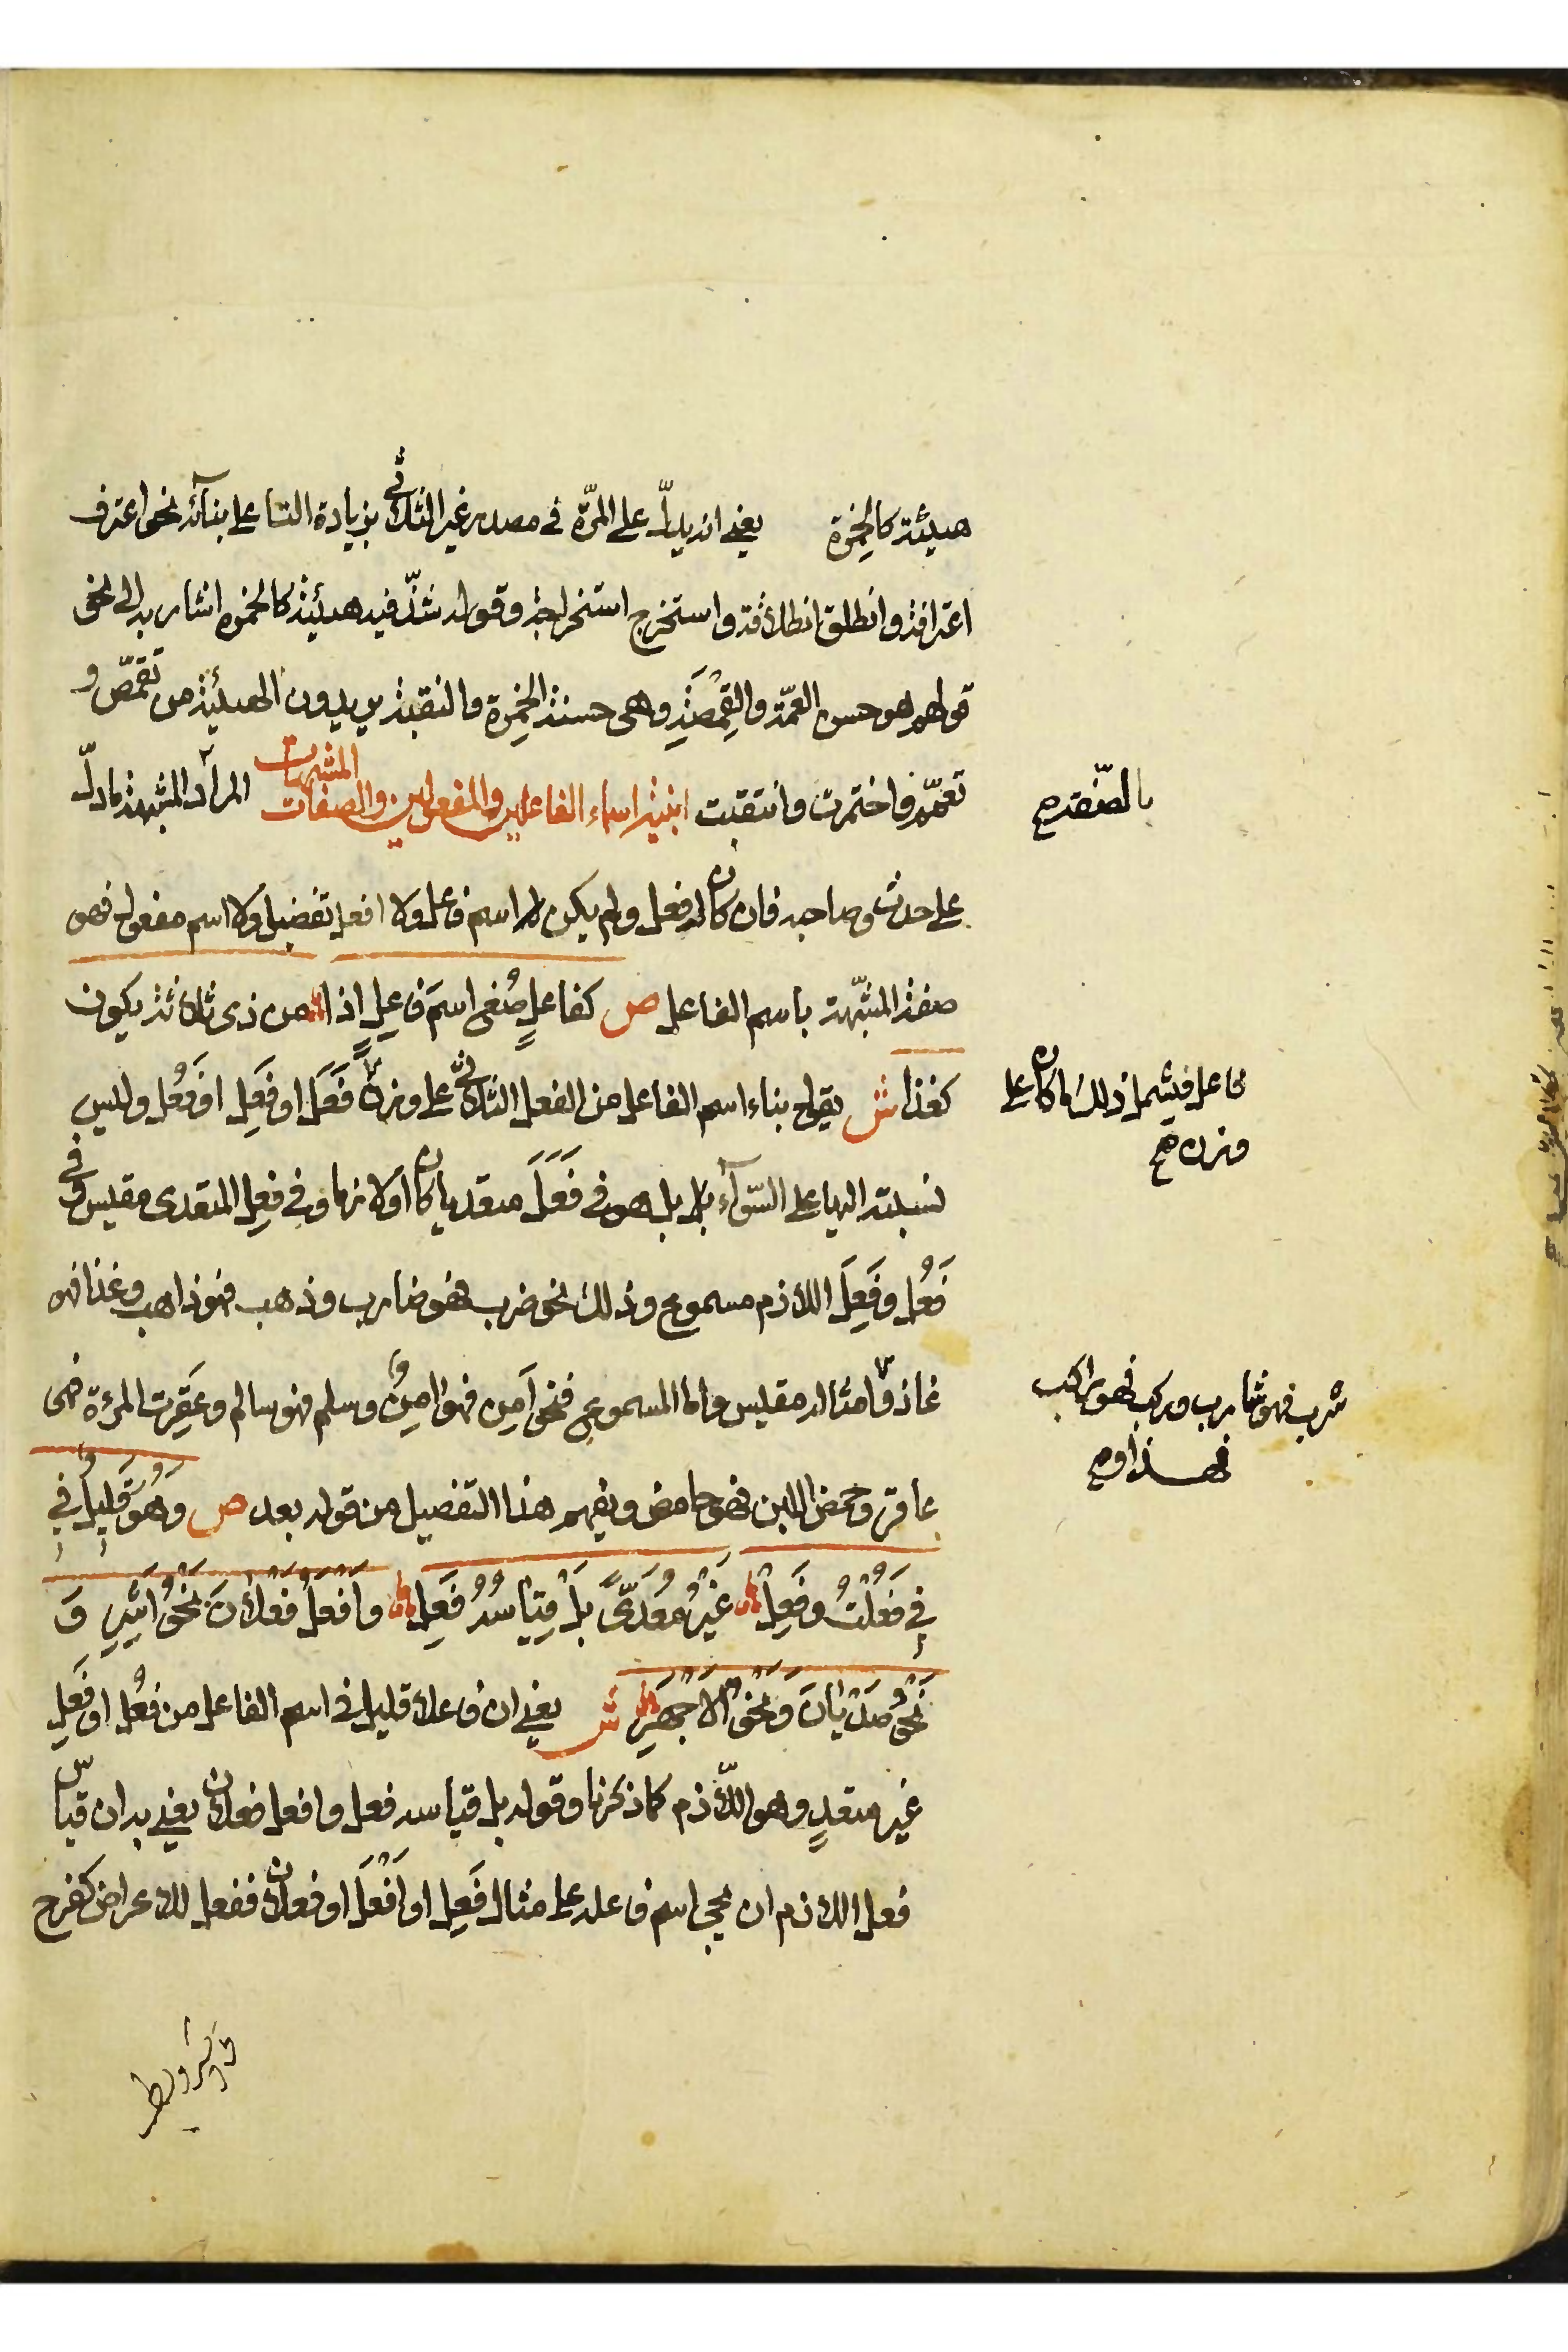 هيئة كالخِمْرة يعني انه يدلّ على المرّة في مصدر غير الثلاثي بزيادة التا على بنائه نحو اعترف
اعترافة وانطلق انطلاقة واستخرج استخراجة وقوله شذّ فيه هيئة كالخمره اشار به الى نحو
قولهم هو حسن العمّة والقِمْصَةِ وهي حسنة الخِمرة والنقبة يريدون الهيئة من تقمّص و
تعمّم واختمرت وانتقبت ابنية اسماء الفاعلين والمفعولين والصفات المشبهات المراد بالمشبهة مادلّ
بالصفة صح
على حدث وصاحبه فان كان له فعل ولم يكن اسم فاعل ولا افعل تفضيل ولا اسم مفعول فهو
صفة المشبّهة باسم الفاعل ص كفاعلٍ صُغ اسمَ فاعلٍ إذا من ذى ثلاثة يكون
كغذا ش يقول بناء اسم الفاعل من الفعل الثلاثيّ على وزن فَعَلَ او فَعِلَ او فَعُل وليس
فاعل فيشمل ذلك ما كان على
وزن صح
نسبته اليها على السّوآء بل هو في فَعَلَ متعديا كان او لازما وفي فعِل المتعدى مقيس وفي
فَعُل وفَعِلَ اللازم مسموع وذلك نحو ضرب فهو ضارب وذهب فهو ذاهب وغذا فهو
غاذ وامثاله مقيس واما المسموع فنحو اَمِن فهو اٰمِنٌ وسلم فهو سالم وعَقِرت المرءة فهى
شرب فهو شارب وركب فهو راكب
فهذا وصح
عاقر وحمض اللبن فهو حامض ويفهم هذا التفصيل من قوله بعد ص وَهُوَ قَليلٌ في
في فَعُلْتُ وفَعِلْ غَيْرُ مُعَدّىً بَلْ قِيَاسُهُ فَعِلْ وَاَفْعَلٌ فَعْلاَنُ نَحْوُ اَشِرِ وَ
نَحْوُ صَدْيَانَ وَنَحْوُ الاَجْهَرِ ش يعني ان فاعلا قليل في اسم الفاعل من فعُل او فَعِل
غير متعدٍ وهو اللاّزم كما ذكرنا وقوله بل قياسه فعل وافعل فعلان يعني به ان قياس
فعل اللازم ان يجي اسم فاعله على مثال فَعِل او اَفْعَلَ او فعلان ففعل للاعراض كفرح